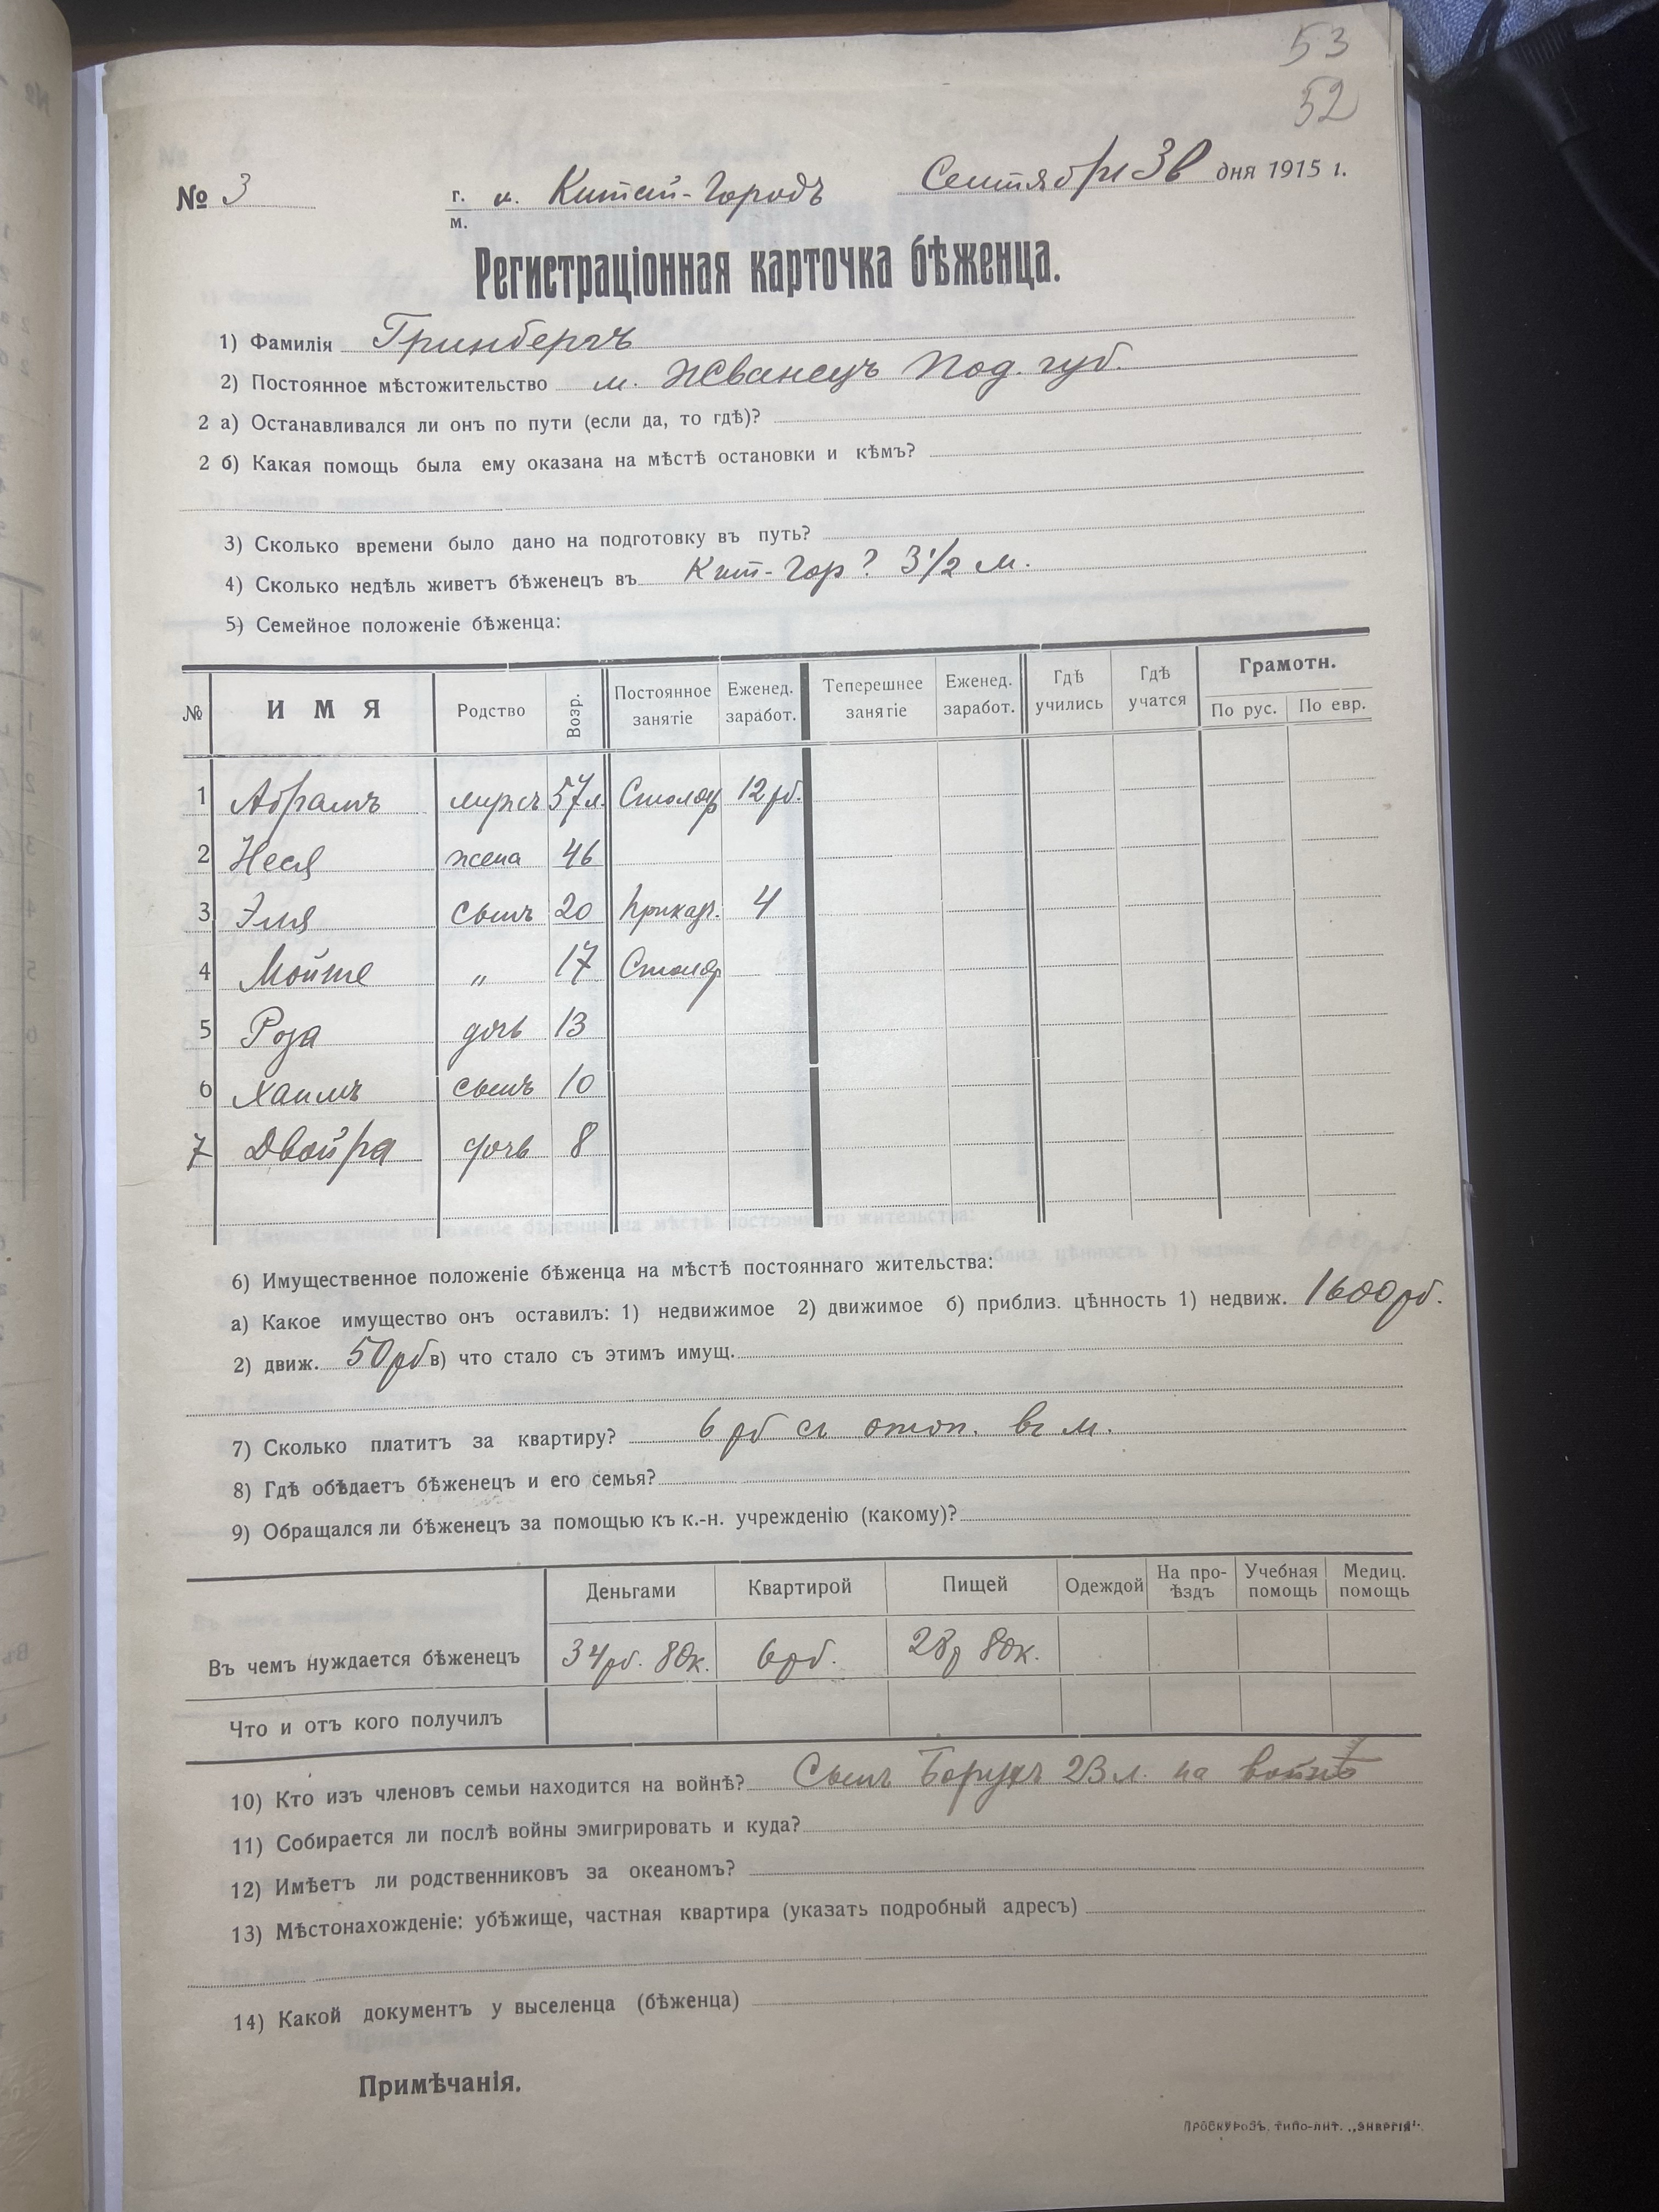 53
52
№ 3 г. м. м. Китай-Городъ Сентября 3 дня 1915 г.
Регистраціонная карточка бѣженца.
1) Фамилія Гринбергъ
2) Постоянное мѣстожительство м. Жванецъ Под. губ.
2 а) Останавливался ли онъ по пути (если да, то гдѣ)?
2 б) Какая помощь была ему оказана на мѣстѣ остановки и кѣмъ?
3) Сколько времени было дано на подготовку въ путь?
4) Сколько недѣль живетъ бѣженецъ въ Кит-Гор? 3 1/2 м.
5) Семейное положеніе бѣженца:
№ ИМЯ Родство Возр. Постоянное занятіе Еженед. заработ. Теперешнее занятіе Еженед. заработ. Гдѣ учились Гдѣ учатся Грамотн. По рус. По евр.
1 Абрамъ мужъ 57 л. Столяр 12 рб.
2 Неся жена 46
3 Эля сынъ 20 Приказ. 4
4 Мойше „ 17 Столяр
5 Роза дочь 13
6 Хаимъ сынъ 10
7 Двойра дочь 8
6) Имущественное положеніе бѣженца на мѣстѣ постояннаго жительства:
а) Какое имущество онъ оставилъ: 1) недвижимое 2) движимое б) приблиз. цѣнность 1) недвиж. 1600 рб.
2) движ. 50 рб в) что стало съ этимъ имущ.
7) Сколько платитъ за квартиру? 6 рб съ отоп. въ м.
8) Гдѣ обѣдаетъ бѣженецъ и его семья?
9) Обращался ли бѣженецъ за помощью къ к.-н. учрежденію (какому)?
Деньгами Квартирой Пищей Одеждой На про-ѣздъ Учебная помощь Медиц. помощь
Въ чемъ нуждается бѣженецъ 34 рб. 80 к. 6 рб. 28 р 80 к.
Что и отъ кого получилъ
10) Кто изъ членовъ семьи находится на войнѣ? Сынъ Борухъ 23 л. на войнѣ
11) Собирается ли послѣ войны эмигрировать и куда?
12) Имѣетъ ли родственниковъ за океаномъ?
13) Мѣстонахожденіе: убѣжище, частная квартира (указать подробный адресъ)
14) Какой документъ у выселенца (бѣженца)
Примѣчанія.
ПРОСКУРОВЪ, ТИПО-ЛИТ. „ЭНЕРГІЯ“.